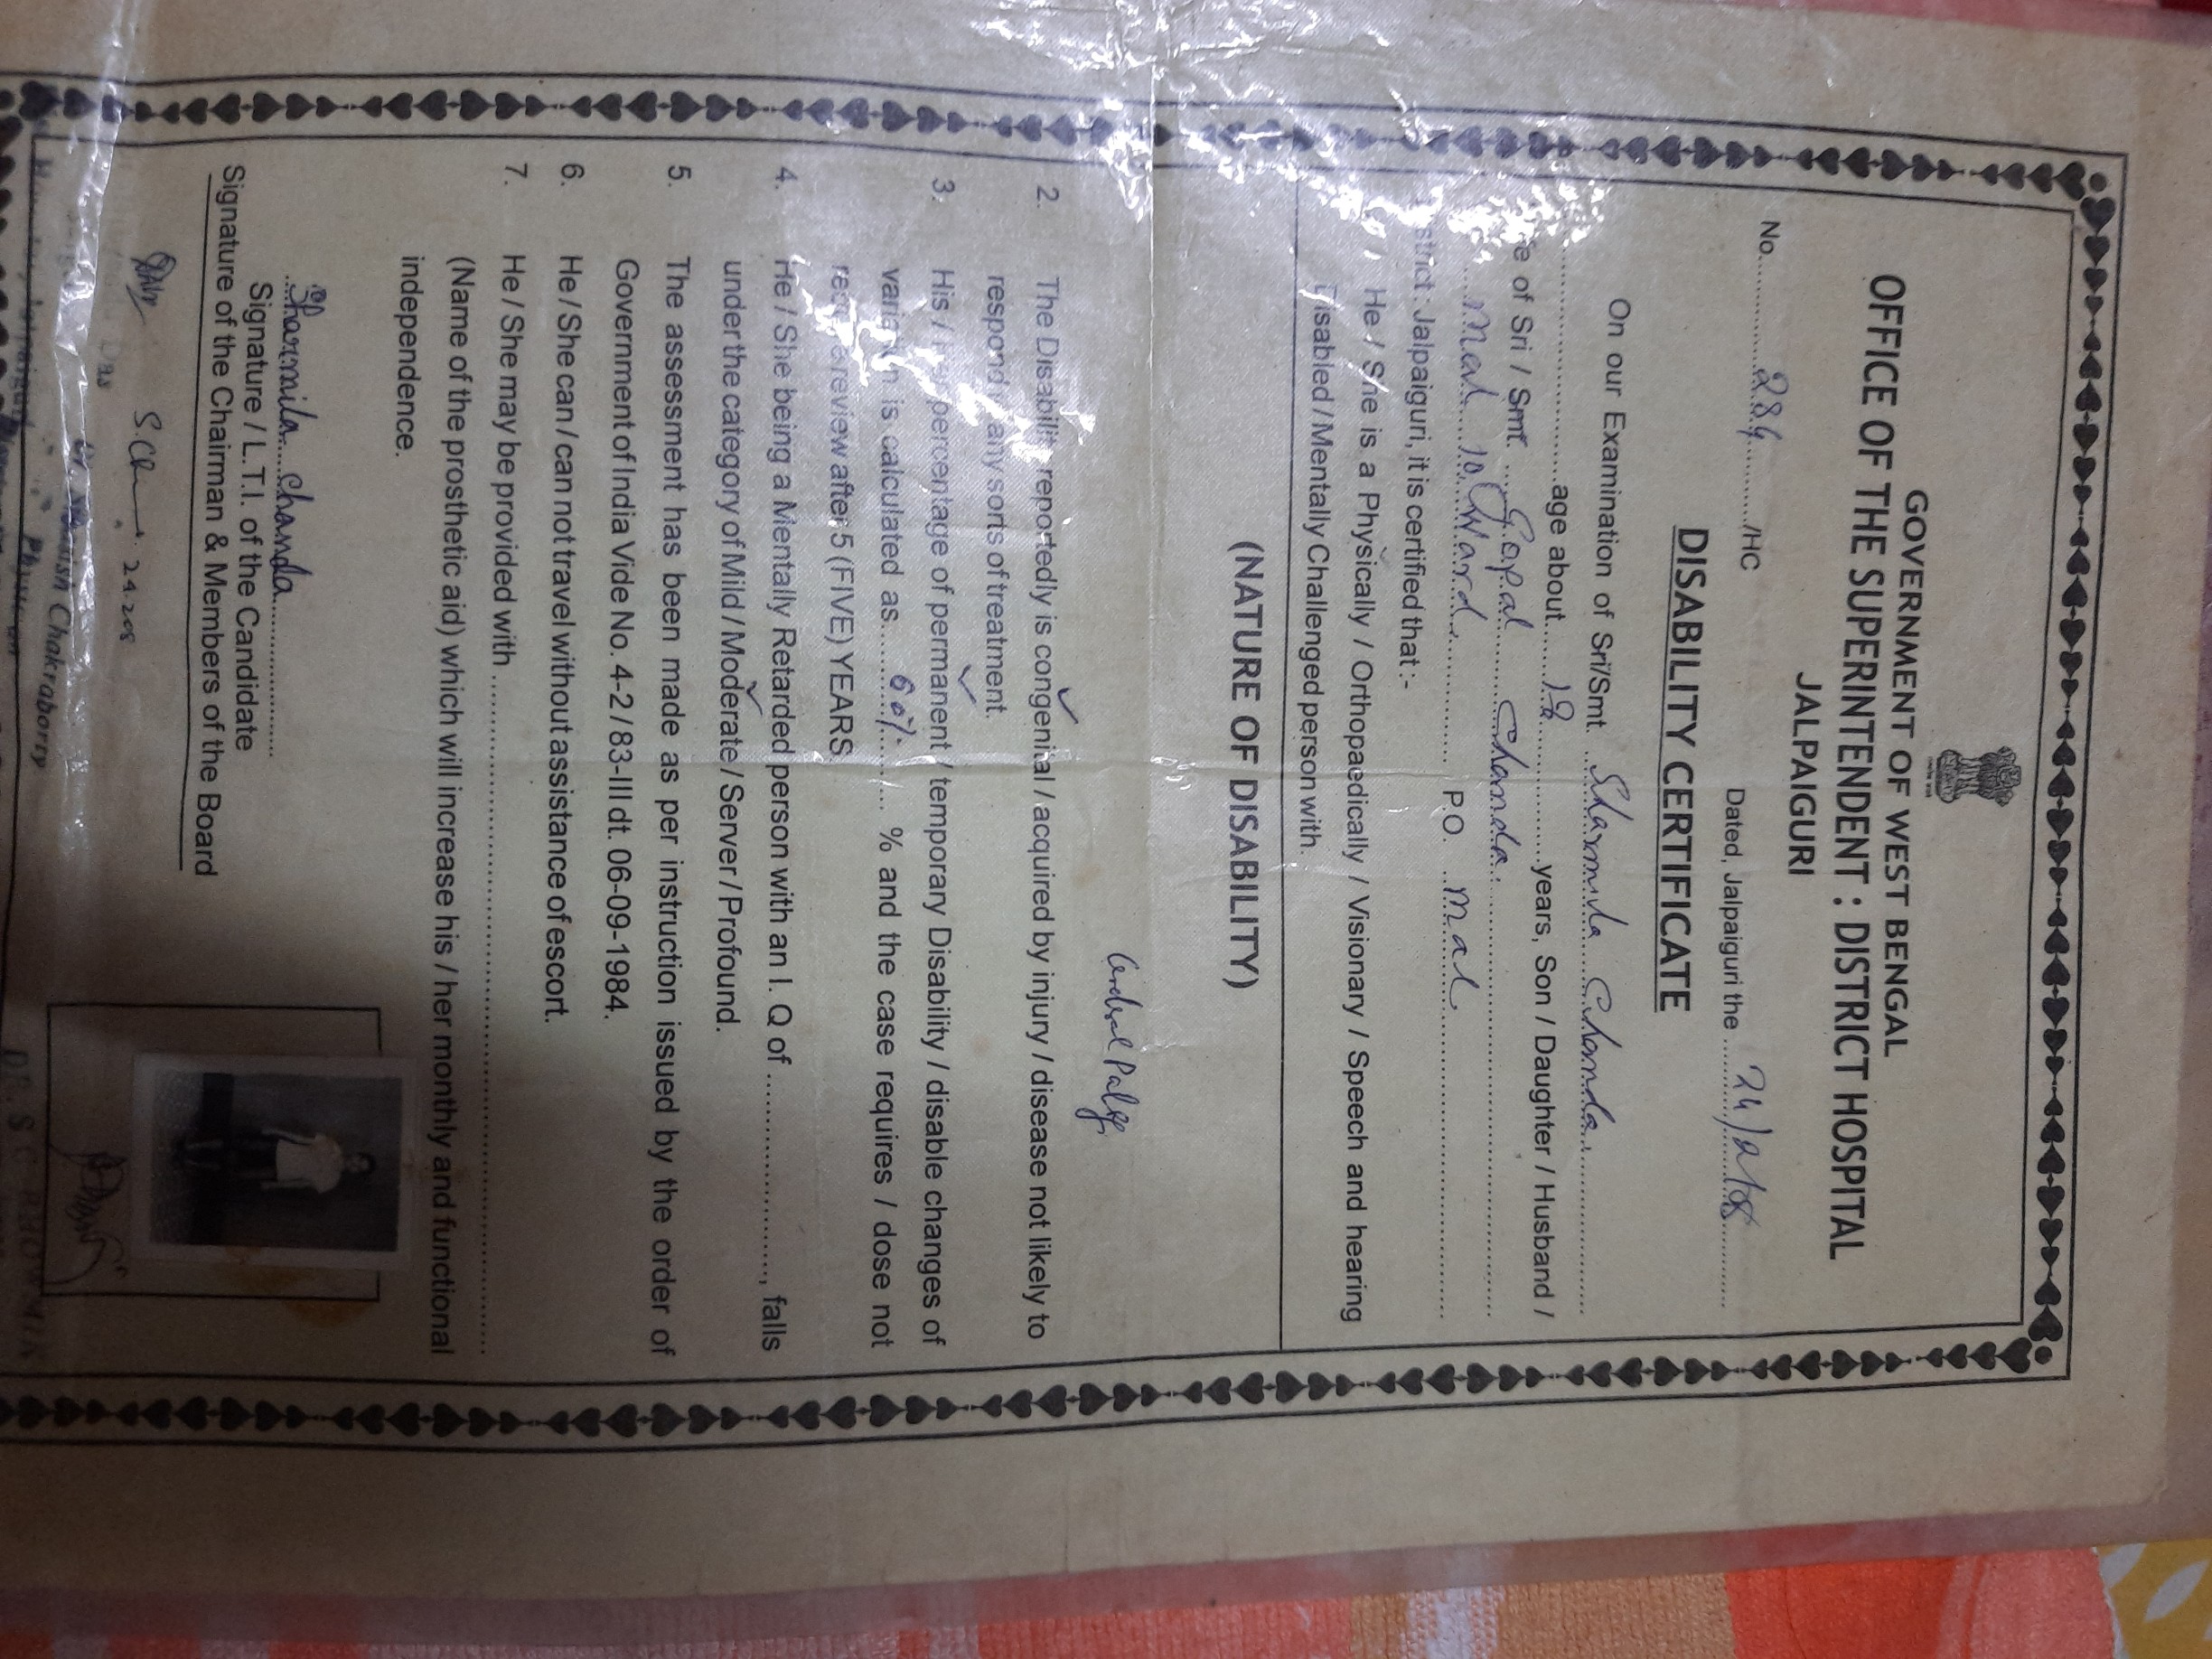 GOVERNMENT OF WEST BENGAL
OFFICE OF THE SUPERINTENDENT : DISTRICT HOSPITAL
JALPAIGURI
No. 284 /HC Dated, Jalpaiguri the
DISABILITY CERTIFICATE
On our Examination of Sri/Smt. Sharmila Chanda
age about 18 years, Son / Daughter / Husband /
of Sri / Smt. Gopal Chanda
Mal 10 Ward P.O. Mal
Jalpaiguri, it is certified that :-
He / She is a Physically / Orthopaedically / Visionary / Speech and hearing
Disabled / Mentally Challenged person with.
(NATURE OF DISABILITY)
Cerebral Palsy
2. The Disability reportedly is congenital / acquired by injury / disease not likely to
respond any sorts of treatment.
3. His / her percentage of permanent / temporary Disability / disable changes of
variation is calculated as 60% % and the case requires / dose not
require review after 5 (FIVE) YEARS
4. He / She being a Mentally Retarded person with an I. Q of , falls
under the category of Mild / Moderate / Server / Profound.
5. The assessment has been made as per instruction issued by the order of
Government of India Vide No. 4-2 / 83-III dt. 06-09-1984.
6. He / She can / can not travel without assistance of escort.
7. He / She may be provided with
(Name of the prosthetic aid) which will increase his / her monthly and functional
independence.
Sharmila Chanda
Signature / L.T.I. of the Candidate
Signature of the Chairman & Members of the Board
Das
Chakraborty